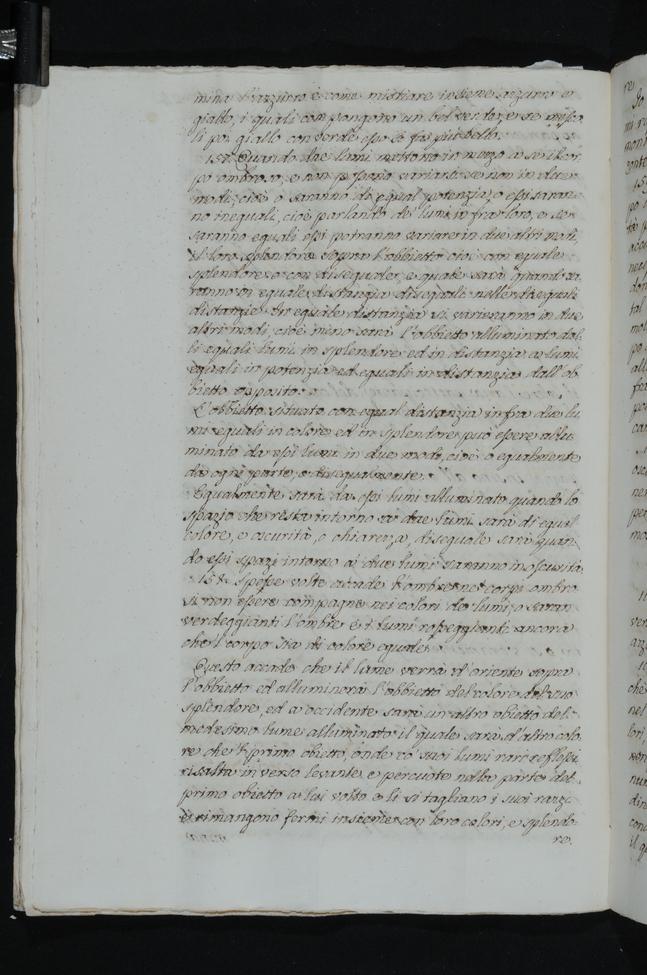 mina l'azzurro è come mistiare insieme azzurro e
giallo, i quali compongono un bel verde, e se misco
li poi giallo con verde esso si fa più bello.
157. Quando due lumi mettono in mezzo a se il cor
po ombroso, e non possono variarsi se non in due
modi, cioè o saranno di equal potenzia, o essi saran
no inequali, cioè parlando de' lumi in fra loro, e se
saranno equali essi potranno variare in due altri modi,
il loro splendore sopra l'obbietto cioè con equale
splendore o con disequale, e quale sarà quando sa
ranno in equale distanzia disequali nelle disequali
distanzie. In equale distanzia si varieranno in due
altri modi, cioè meno sarà l'obbietto alluminato dal
li equali lumi in splendore ed in distanzia a lumi
equali in potenzia ed equali in distanzia dall'ob
bietto opposito.
L'obbietto situato con equal distanzia in fra due lu
mi equali in colore ed in splendore può essere allu
minato da essi lumi in due modi, cioè o equalmente
da ogni parte, o disequalmente.
Equalmente sarà da essi lumi alluminato quando lo
spazio che resta intorno a' due lumi sarà di equal
colore, e oscurità, o chiarezza, disequale sarà quan
do essi spazi intorno ai due lumi saranno in oscurità
158. Spesse volte accade l'ombre ne' corpi ombro
si non essere compagne nei colori de lumi, o saran
verdeggianti l'ombre e i lumi rosseggianti ancora
che l'corpo sia di colore equale.
Questo accade che il lume verrà d'oriente sopra
l'obbietto ed alluminerà l'obbietto del colore del suo
splendore, ed a occidente sarà un altro obietto del
medesimo lume alluminato il quale sarà d'altro colo
re che l'primo obietto, onde co' suoi lumi reflessi
risalta inverso levante e percuote nella parte del
primo obietto a lui volto e li si tagliano i suoi razzi
e rimangono fermi insieme con loro colori, e splendo-
re.